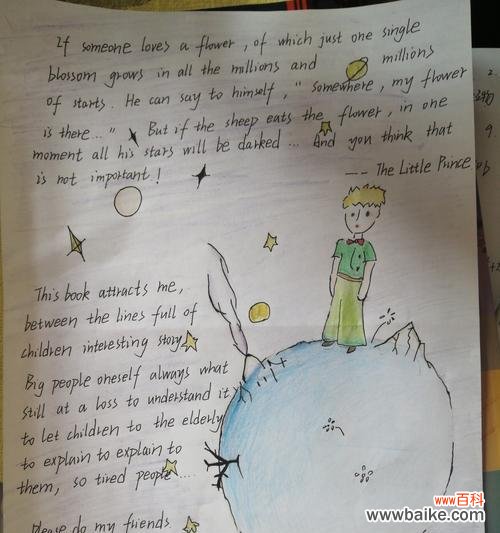 If someone loves a flower, of which just one single
blossom grows in all the millions and millions
of starts. He can say to himself, "somewhere, my flower
is there..." But if the sheep eats the flower, in one
moment all his stars will be darked... And you think that
is not important!
--- The Little Prince
This book attracts me,
between the lines full of
children interesting story.
Big people oneself always what
still at a loss to understand it
to let children to the elderly
to explain to explain to
them, so tired people....
Please do my friends
2.
9
www百科
www.baike.com